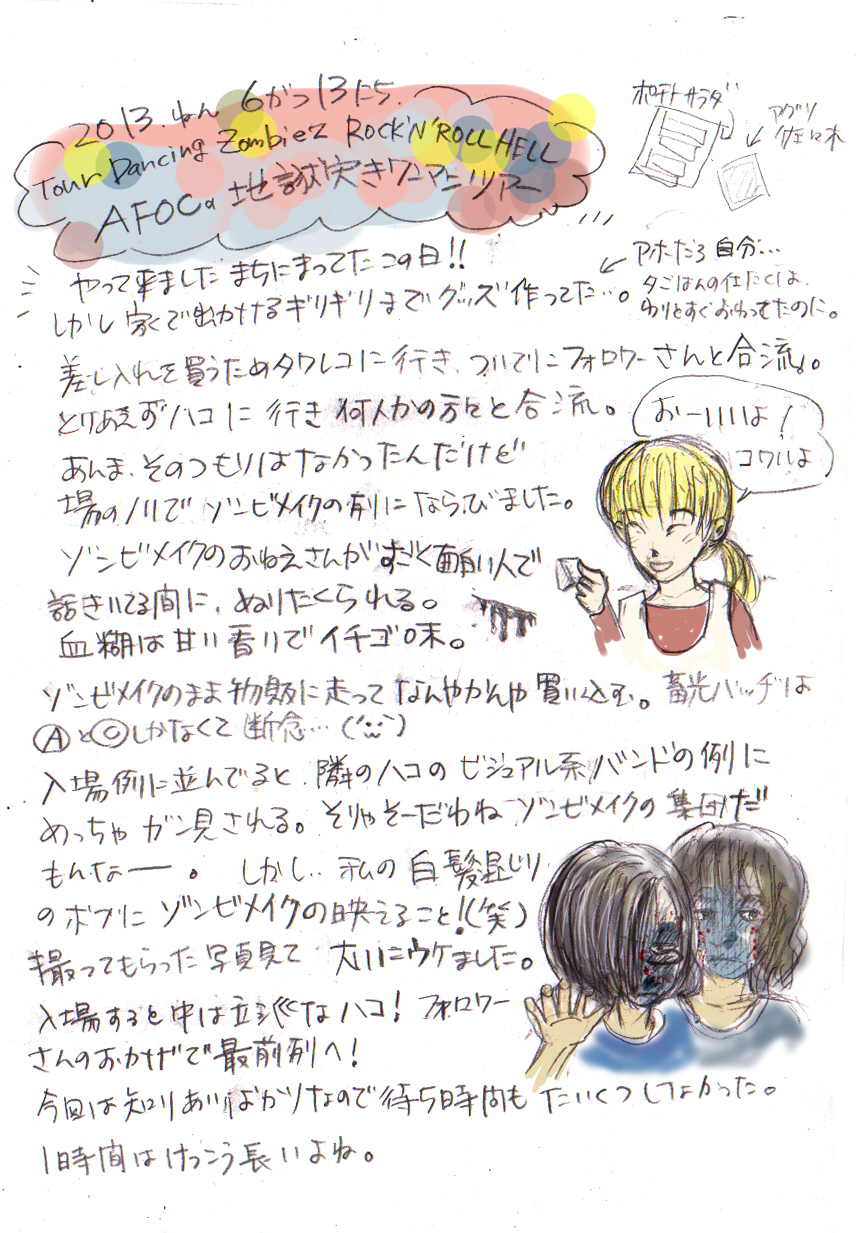 2013.ねん 6がつ13にち.
Tour Dancing Zombiez ROCK'N'ROLL HELL
AFOCの地獄突きワンマンツアー
ポテトサラダ
アグリ
佐々木
やって来ました まちにまってたこの日!!
しかし 家で出かけるギリギリまでグッズ作ってた…。
アホだろ自分…
夕ごはんの仕たくは、
わりとすぐおわってたのに。
差し入れを買うためタワレコに行き、ついでにフォロワーさんと合流。
とりあえずハコに行き 何人かの方々と合流。
あんま、そのつもりはなかったんだけど
場のノリで ゾンビメイクの列にならびました。
おーいいよ!
コワいよ
ゾンビメイクのおねえさんがすごく面白い人で
話きいてる間に、ぬりたくられる。
血糊は甘い香りでイチゴ味。
ゾンビメイクのまま物販に走ってなんやかんや買い込む。蓄光バッヂは
ⒶとⒸしかなくて断念…(´・ω・`)
入場例に並んでると、隣のハコのビジュアル系バンドの例に
めっちゃガン見される。そりゃそーだわね ゾンビメイクの集団だ
もんなー。 しかし… 私の白髪混じり
のボブにゾンビメイクの映えること!(笑)
撮ってもらった写真見て 大いにウケました。
入場すると中は立派なハコ! フォロワー
さんのおかげで最前列へ!
今回は知りあいばかりなので待ち時間もたいくつしなかった。
1時間はけっこう長いよね。